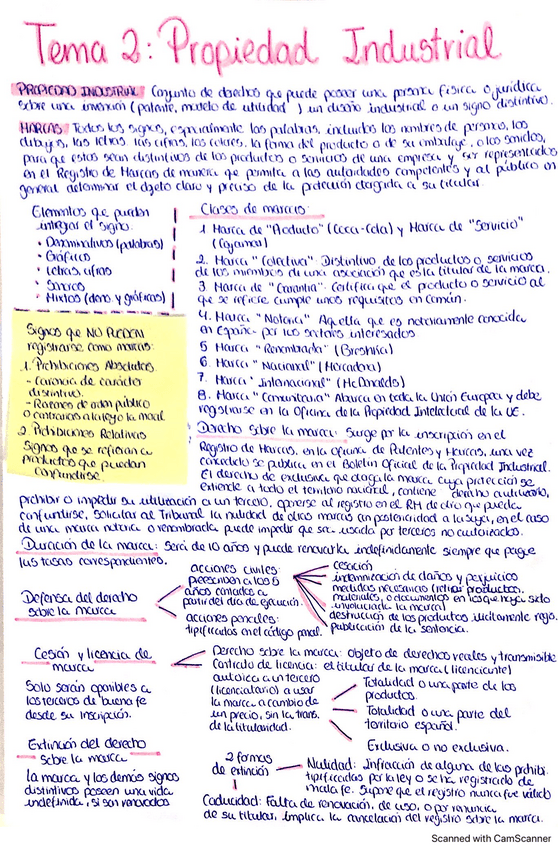 Tema 2: Propiedad Industrial
PROPIEDAD INDUSTRIAL Conjunto de derechos que puede poseer una persona física o jurídica
sobre una invención (patente, modelo de utilidad ) un diseño industrial o un signo distintivo.
MARCAS Todos los signos, especialmente las palabras, incluidos los nombres de personas, los
dibujos, las letras, las cifras, los colores, la forma del producto o de su embalaje, o los sonidos,
para que estos sean distintivos de los productos o servicios de una empresa y ser representados
en el Registro de Marcas de manera que permita a las autoridades competentes y al público en
general determinar el objeto claro y preciso de la protección otorgada a su titular.
Elementos que pueden
integrar el signo:
• Denominativos (palabras)
• Gráficos
• Letras, cifras
• Sonoros
• Mixtos (deno. y gráficos)
Clases de marcas:
1. Marca de "Producto" (Coca-Cola) y Marca de "Servicio"
(Cajamar)
2. Marca "Colectiva" Distintivo de los productos o servicios
de los miembros de una asociación que es la titular de la marca.
3. Marca de "Garantía" Certifica que el producto o servicio al
que se refiere cumple unos requisitos en común.
4. Marca "Notoria" Aquella que es notoriamente conocida
en España por los sectores interesados
5 Marca "Renombrada" (Bershka)
6. Marca "Nacional" (Mercadona)
7. Marca "Internacional" (McDonalds)
8. Marca "Comunitaria" Abarca en toda la Unión Europea y debe
registrarse en la Oficina de la Propiedad Intelectual de la UE.
Signos que NO PUEDEN
registrarse como marcas:
1. Prohibiciones Absolutas
- Carencia de carácter
distintivo.
- Razones de orden público
o contrarios a la ley o la moral
2. Prohibiciones Relativas
Signos que se refieran a
productos que puedan
confundirse.
Derecho sobre la marca: Surge por la inscripción en el
Registro de Marcas, en la oficina de Patentes y Marcas, una vez
concedido se publica en el Boletín Oficial de la Propiedad Industrial.
El derecho de exclusiva que otorga la marca cuya protección se
extiende a todo el territorio nacional, contiene derecho a utilizarlo,
prohibir o impedir su utilización a un tercero, oponerse al registro en el RM de otro que pueda
confundirse, solicitar al Tribunal la nulidad de otras marcas con posterioridad a la suya, en el caso
de una marca notoria o renombrada puede impedir que sea usada por terceros no autorizados.
Duración de la marca: Será de 10 años y puede renovarla indefinidamente siempre que pague
las tasas correspondientes.
Defensa del derecho
sobre la marca
acciones civiles:
prescriben a los 5
años contados a
partir del día de ejecución.
acciones penales:
tipificadas en el código penal.
cesación
indemnización de daños y perjuicios
medidas necesarias (retirar productos,
materiales, o documentos en los que haya sido
involucrada la marca)
destrucción de los productos ilícitamente regis.
publicación de la sentencia.
Cesión y licencia de
marca
Solo serán oponibles a
los terceros de buena fe
desde su inscripción.
Derecho sobre la marca: objeto de derechos reales y transmisible
Contrato de licencia: el titular de la marca (licenciante)
autoriza a un tercero
(licenciatario) a usar
la marca a cambio de
un precio, sin la trans.
de la titularidad.
Totalidad o una parte de los
productos.
Totalidad o una parte del
territorio español.
Exclusiva o no exclusiva.
Extinción del derecho
sobre la marca
la marca y los demás signos
distintivos poseen una vida
indefinida, si son renovados
2 formas
de extinción
Nulidad: Infracción de alguna de las prohibi.
tipificadas por la ley o se ha registrado de
mala fe. Supone que el registro nunca fue válido
Caducidad: Falta de renovación, de uso, o por renuncia
de su titular, implica la cancelación del registro sobre la marca.
Scanned with CamScanner